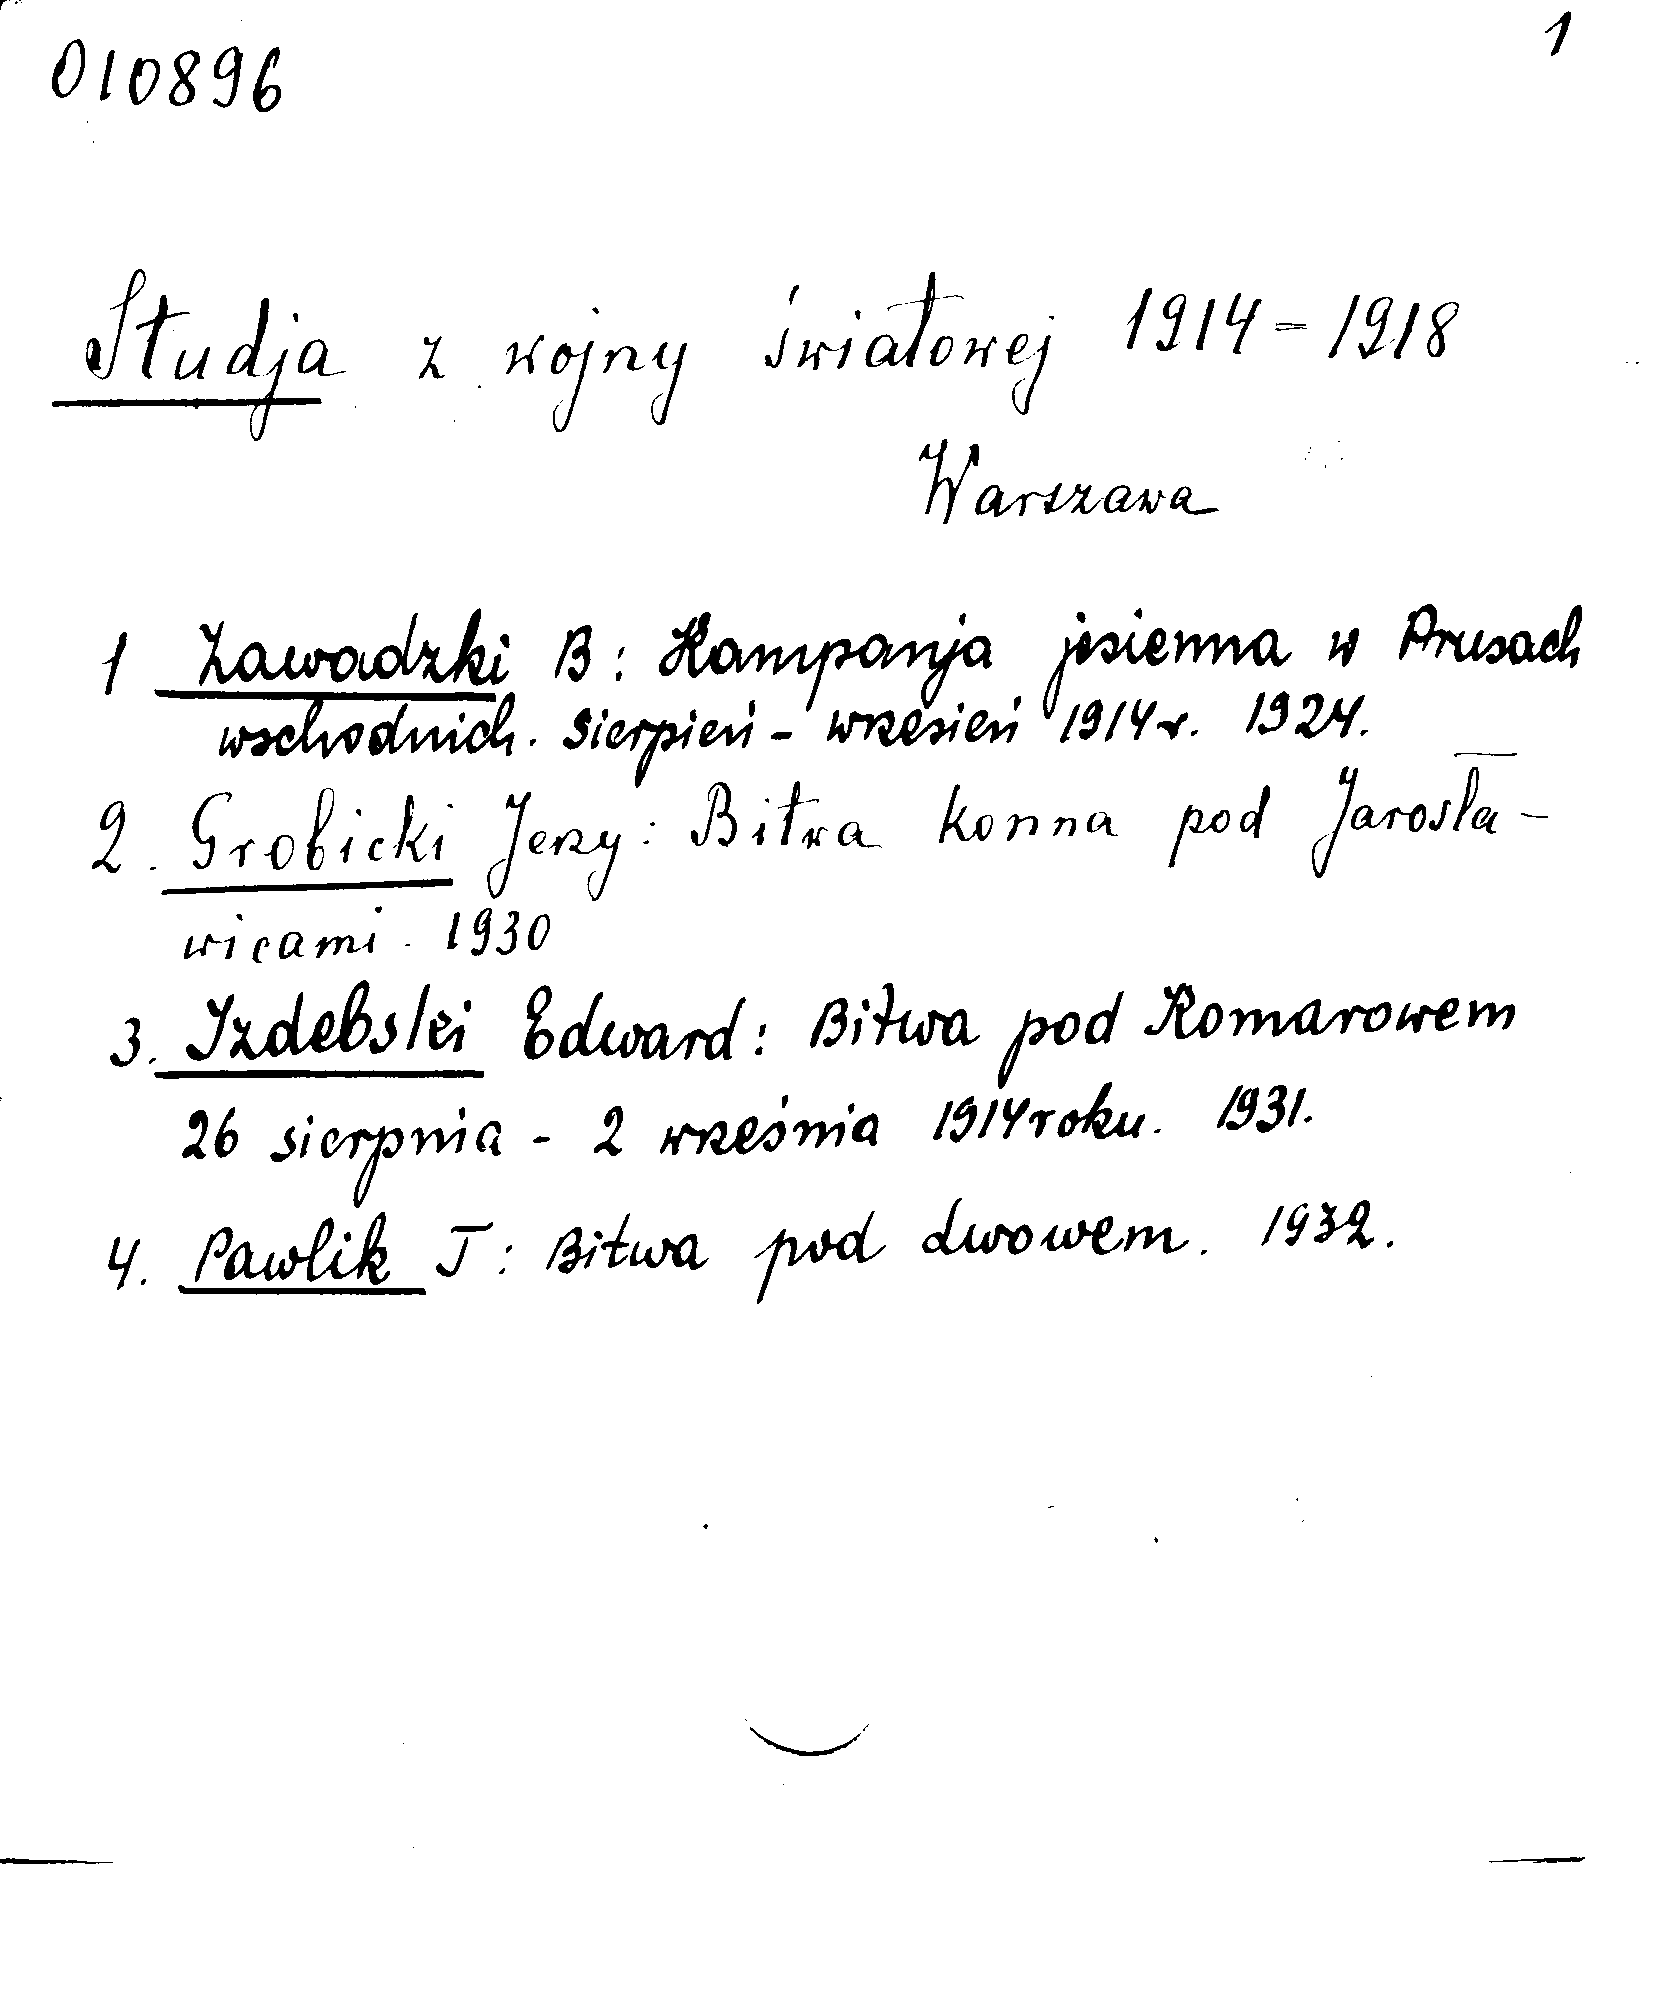 010896
1
Studja z wojny światowej 1914-1918
Warszawa
1 Zawadzki B: Kampanja jesienna w Prusach
wschodnich. Sierpień - wrzesień 1914 r. 1924.
2. Grobicki Jerzy: Bitwa konna pod Jarosła-
wicami. 1930
3. Izdebski Edward: Bitwa pod Komarowem
26 sierpnia - 2 września 1914 roku. 1931.
4. Pawlik T: Bitwa pod Lwowem. 1932.